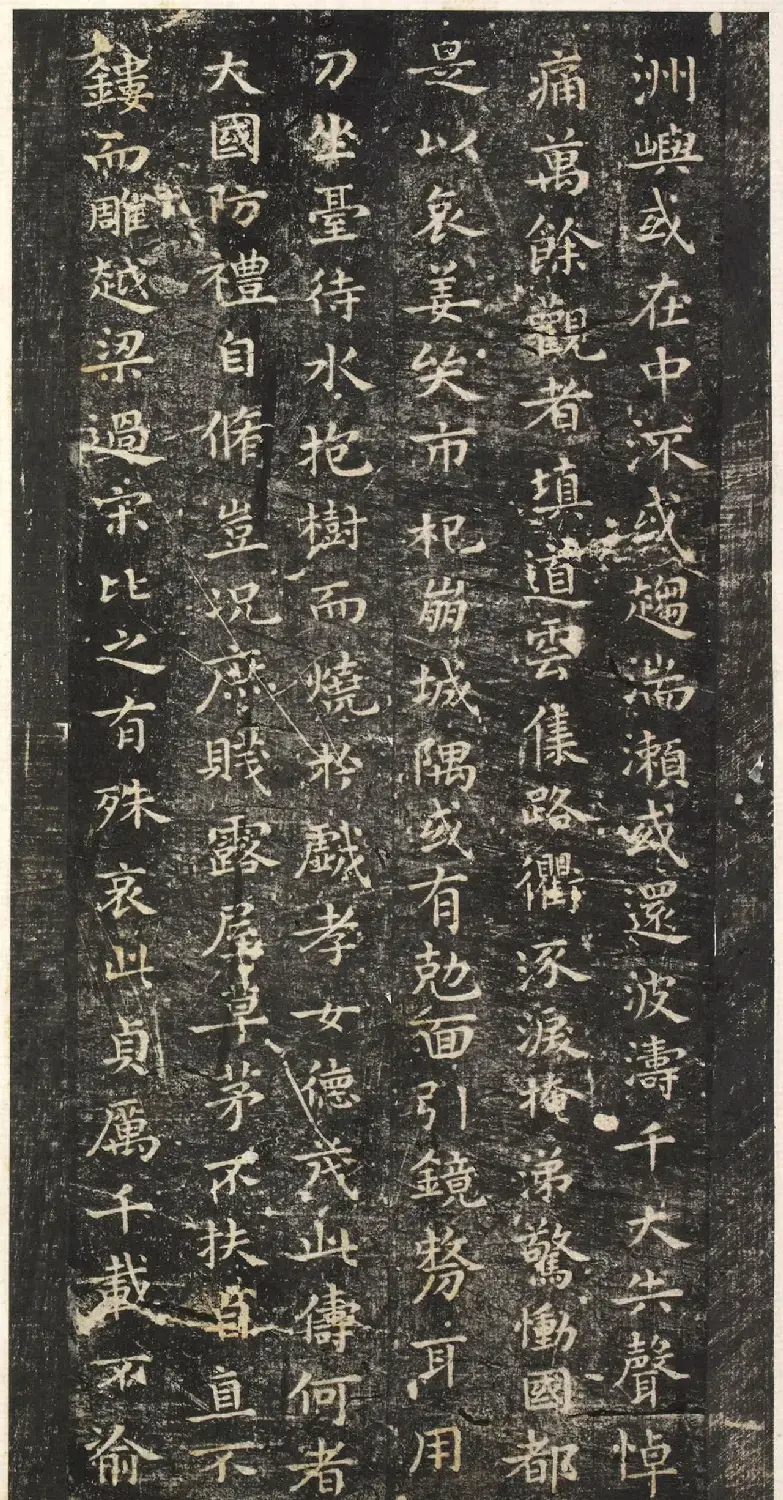 洲嶼或在中流或趨湍瀨或還波濤千夫失聲悼
痛萬餘觀者填道雲集路衢泺淚掩涕驚慟國都
是以哀姜哭市杞崩城隅或有尅面引鏡剺耳用
刀坐臺待水抱樹而燒於戲孝女德茂此儔何者
大國防禮自脩豈況庶賤露屋草茅不扶自直不
鏤而雕越梁過宋比之有殊哀此貞厲千載不渝